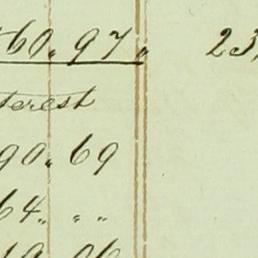 60.97. 23
terest
90.69
64. " "
19 06